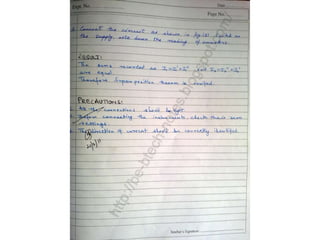 Page No.
Date
Page No.
3. Connect the element as shown in fig (3) switch on
the supply, note down the reading of ammeter.
RESULT:
The sums recorded as I₁ = I₁' + I₁'' and I₂ = I₂' + I₂''
are equal.
Therefore superposition theorem is verified.
PRECAUTIONS:
All the connections should be tight.
Before connecting the instruments check their zero
readings.
The direction of current should be correctly identified.
http://be-btech-notes.blogspot.com/
Teacher's Signature